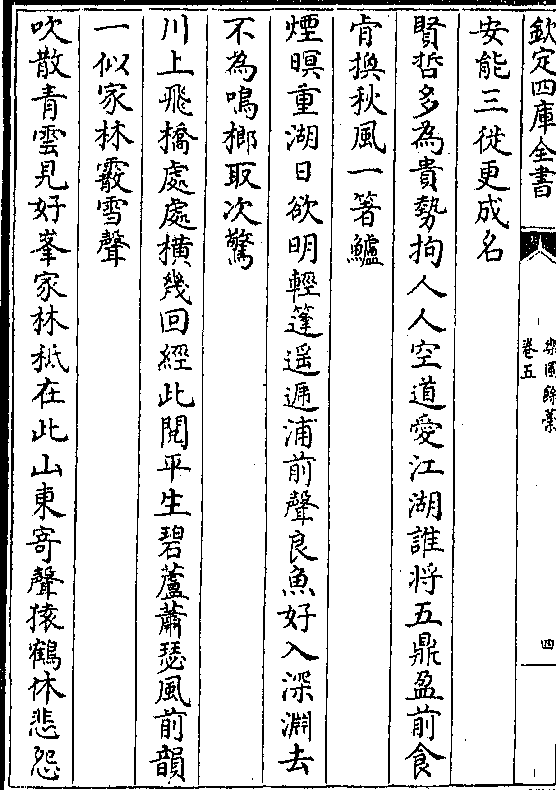 欽定四庫全書
卷五
四
安能三從更成名
賢哲多為貴勢拘人人空道愛江湖誰將五鼎盈前食
肯換秋風一箸鱸
煙暝重湖日欲明輕篷遥遞浦前聲良魚好入深淵去
不為鳴榔取次驚
川上飛橋處處橫幾回經此閱平生碧蘆蕭瑟風前韻
一似家林霰雪聲
吹散青雲見好峯家林秪在此山東寄聲猿鶴休悲怨